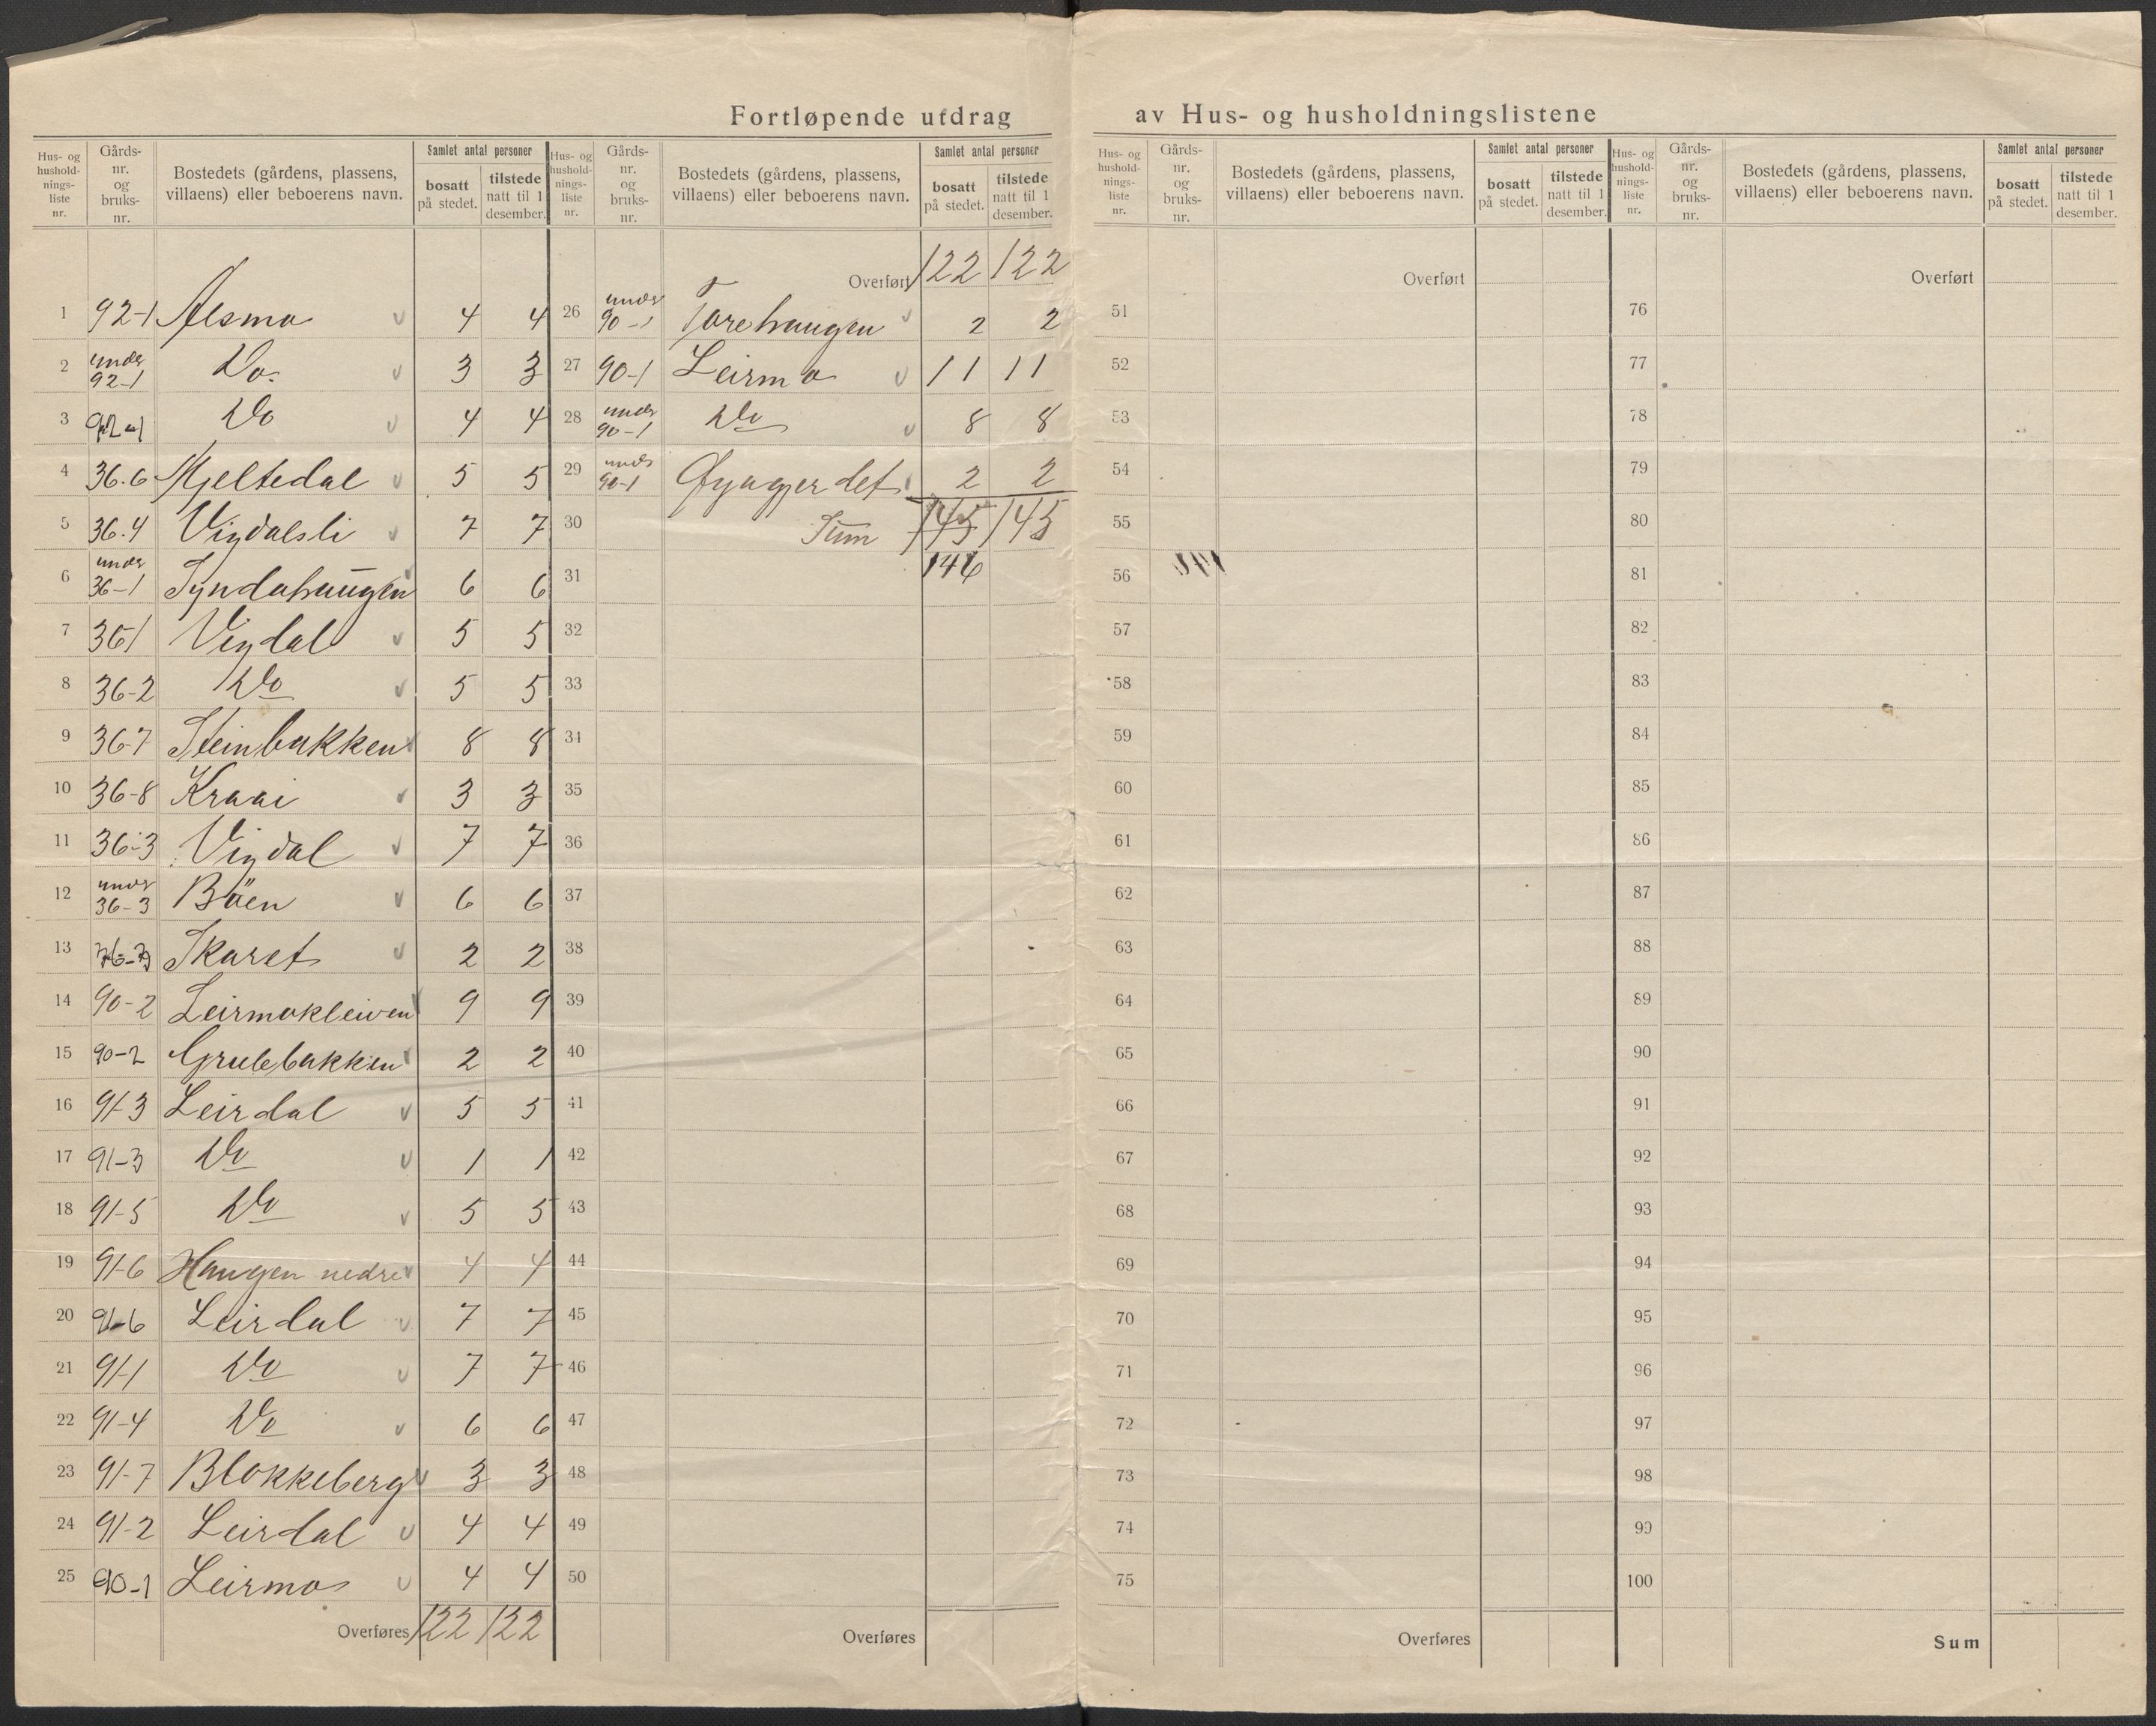 Fortløpende utdrag av Hus- og husholdningslistene
Hus- og hushold- nings- liste nr. Gårds- nr. og bruks- nr. Bostedets (gårdens, plassens, villaens) eller beboerens navn. Samlet antal personer bosatt på stedet. tilstede natt til 1 desember.
1 92-1 Alsmo v 4 4
2 under 92-1 Do. v 3 3
3 92-1 Do v 4 4
4 36.6 Mjeltedal v 5 5
5 36.4 Vigdalsli v 7 7
6 under 36-1 Syndahaugen v 6 6
7 36-1 Vigdal v 5 5
8 36-2 Do v 5 5
9 36-7 Steinbakken v 8 8
10 36-8 Kraai v 3 3
11 36-3 Vigdal v 7 7
12 under 36-3 Böen v 6 6
13 Skaret v 2 2
14 90-2 Leirmokleiven v 9 9
15 90-2 Grubebakken v 2 2
16 91-3 Leirdal v 5 5
17 91-3 Do v 1 1
18 91-5 Do v 5 5
19 91-6 Haugen nedre v 4 4
20 91-6 Leirdal v 7 7
21 91-1 Do v 7 7
22 91-4 Do v 6 6
23 91-7 Blokkeberg v 3 3
24 91-2 Leirdal v 4 4
25 90-1 Leirmo v 4 4
Overføres 122 122
Hus- og hushold- nings- liste nr. Gårds- nr. og bruks- nr. Bostedets (gårdens, plassens, villaens) eller beboerens navn. Samlet antal personer bosatt på stedet. tilstede natt til 1 desember.
Overført 122 122
26 under 90-1 Torehaugen v 2 2
27 90-1 Leirmo v 11 11
28 under 90-1 Do v 8 8
29 under 90-1 Øygjerdet v 2 2
30 Sum 145 145
31 146
32
33
34
35
36
37
38
39
40
41
42
43
44
45
46
47
48
49
50
Overføres
Hus- og hushold- nings- liste nr. Gårds- nr. og bruks- nr. Bostedets (gårdens, plassens, villaens) eller beboerens navn. Samlet antal personer bosatt på stedet. tilstede natt til 1 desember.
Overført
51
52
53
54
55
56
57
58
59
60
61
62
63
64
65
66
67
68
69
70
71
72
73
74
75
Overføres
Hus- og hushold- nings- liste nr. Gårds- nr. og bruks- nr. Bostedets (gårdens, plassens, villaens) eller beboerens navn. Samlet antal personer bosatt på stedet. tilstede natt til 1 desember.
Overført
76
77
78
79
80
81
82
83
84
85
86
87
88
89
90
91
92
93
94
95
96
97
98
99
100
Sum